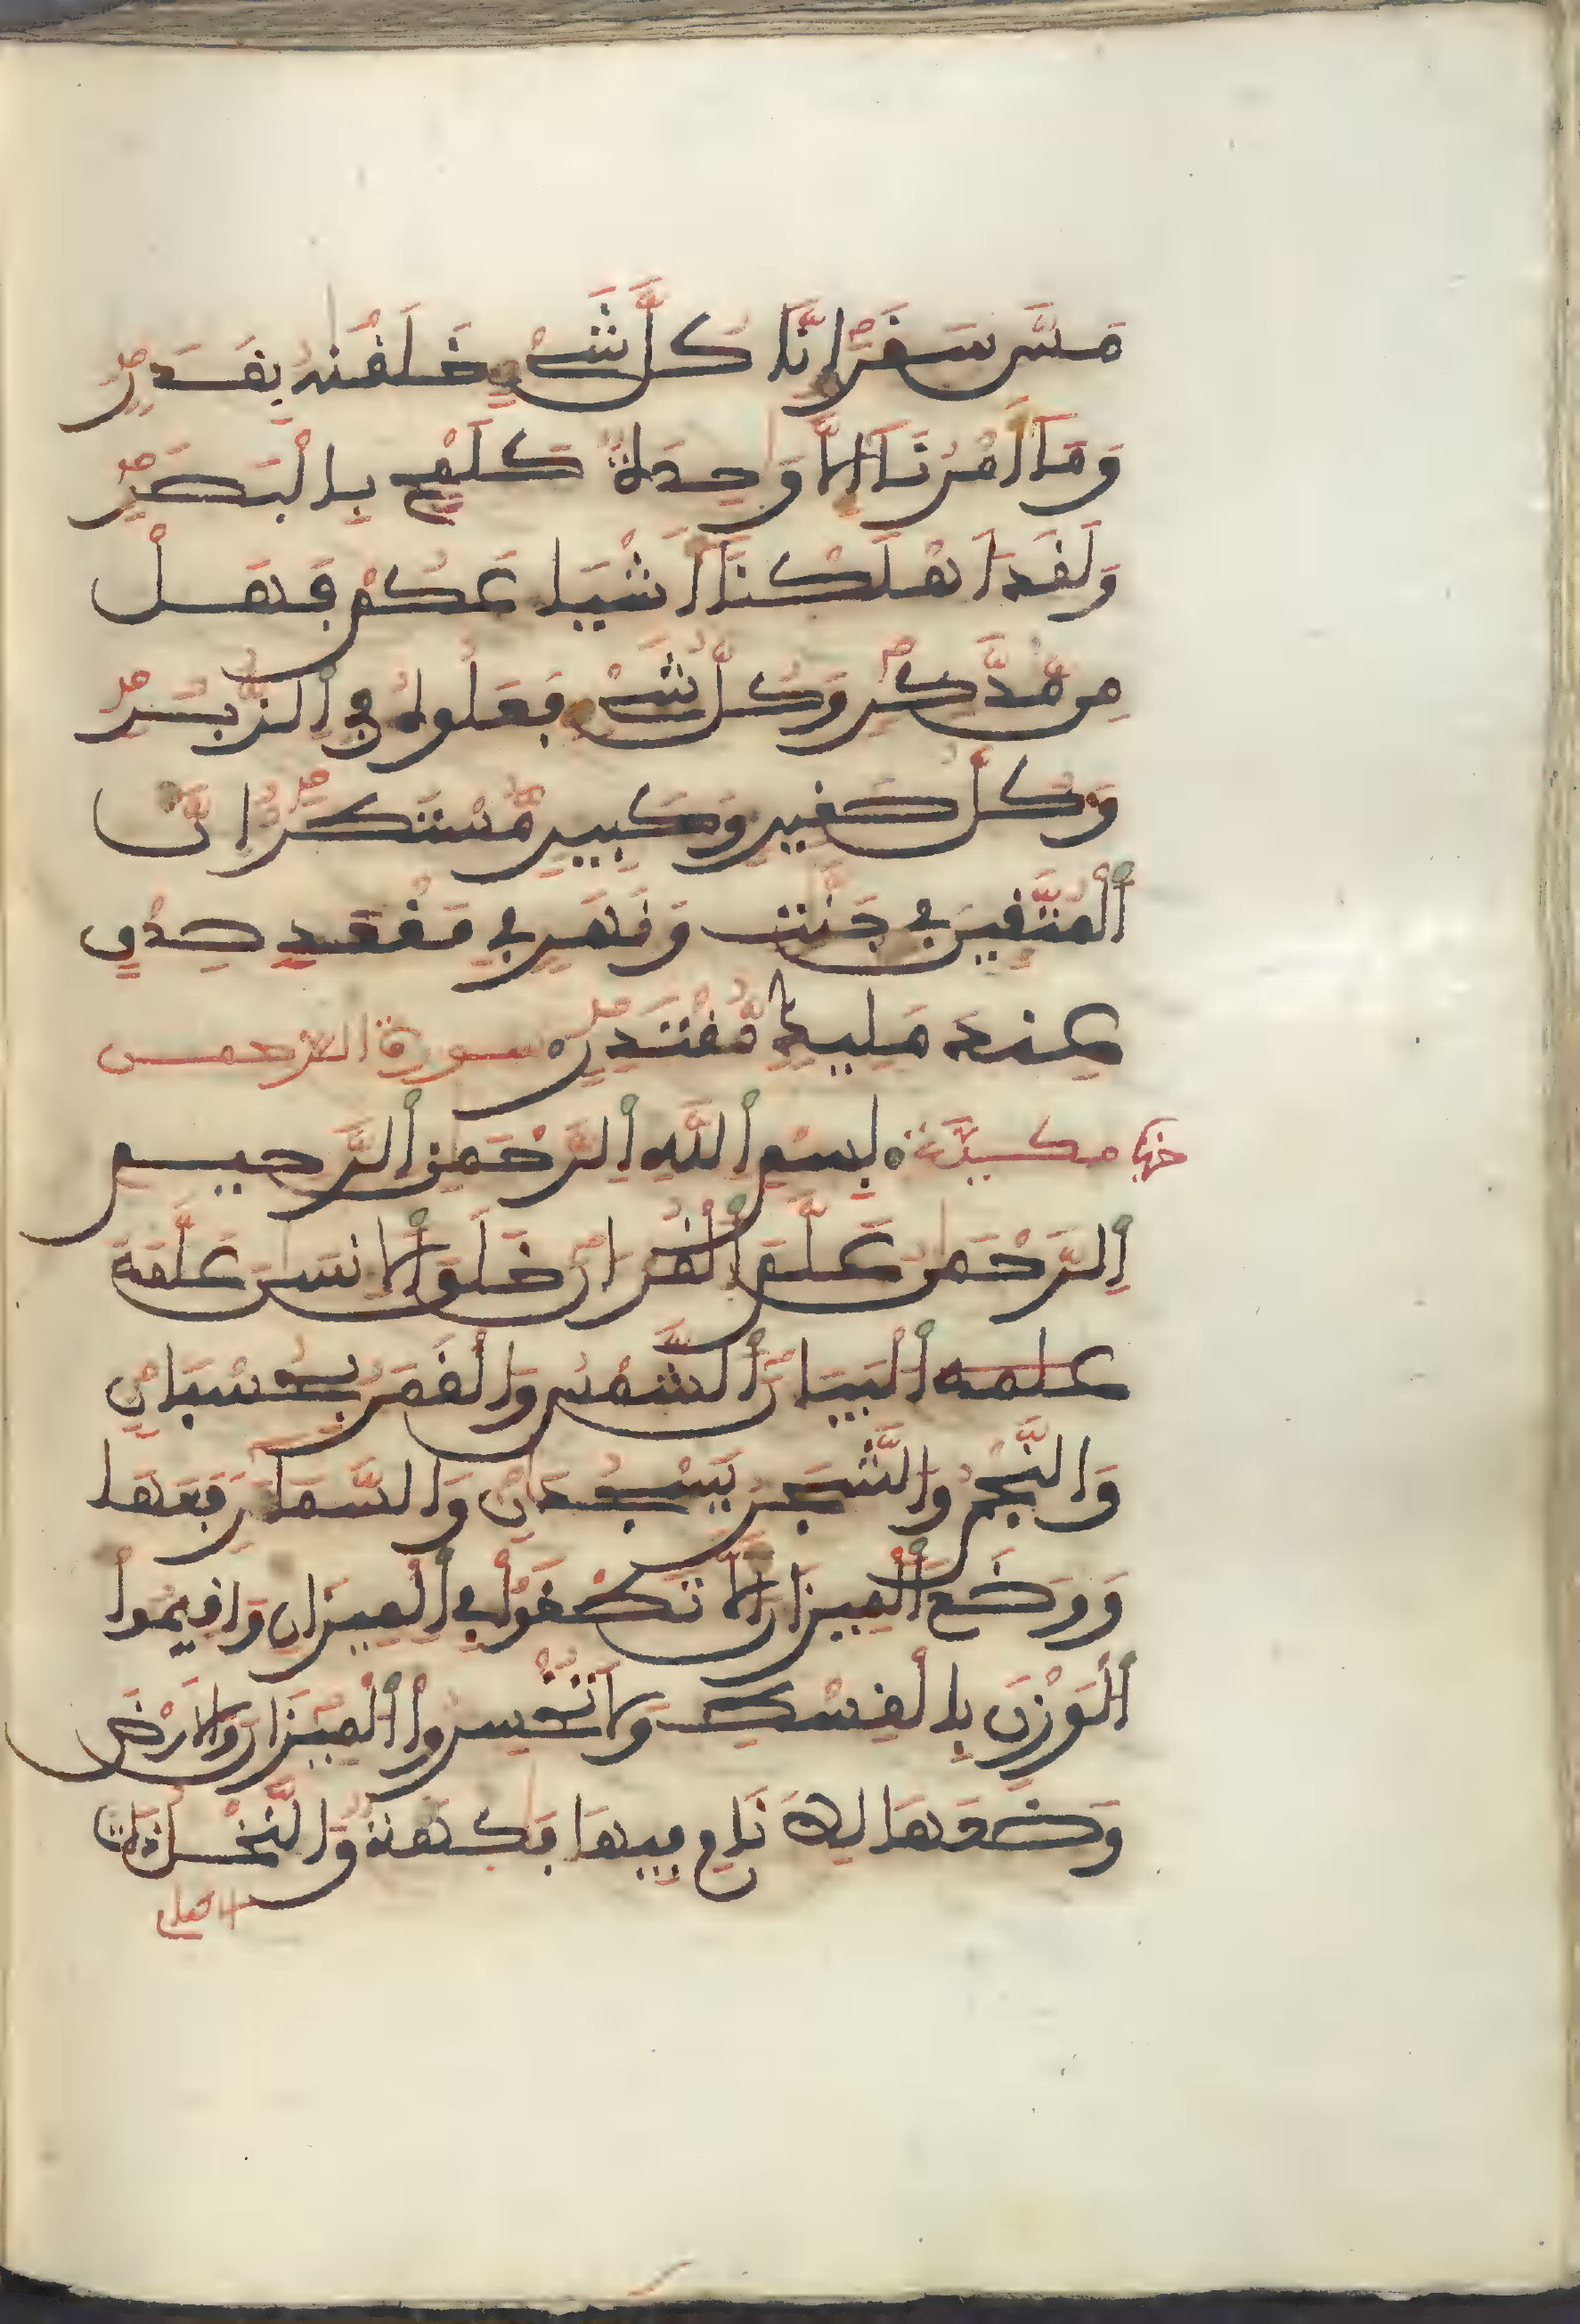 مَسَّ سَقَرَ إِنَّا كُلَّ شَيْءٍ خَلَقْنَهُ بِقَدَرٍ
وَمَا أَمْرُنَا إِلَّا وَحِدَةٌ كَلَمْحٍ بِالْبَصَرِ
وَلَقَدَ اهْلَكْنَا أَشْيَاعَكُمْ فَهَلْ
مِن مُّدَّكِرٍ وَكُلُّ شَيْءٍ فَعَلُوهُ فِي الزُّبُرِ
وَكُلُّ صَغِيرٍ وَكَبِيرٍ مُّسْتَطَرٌ إِنَّ
الْمُتَّقِينَ فِي جَنَّتٍ وَنَهَرٍ فِي مَقْعَدِ صِدْقٍ
عِندَ مَلِيكٍ مُّقْتَدِرٍ سورة الرحمن
مكية بِسْمِ اللَّهِ الرَّحْمَنِ الرَّحِيمِ
الرَّحْمَنُ عَلَّمَ الْقُرْانَ خَلَقَ الِانسَنَ عَلَّمَهُ
علمه الْبَيَانَ الشَّمْسُ وَالْقَمَرُ بِحُسْبَانٍ
وَالنَّجْمُ وَالشَّجَرُ يَسْجُدَانِ وَالسَّمَاءَ رَفَعَهَا
وَوَضَعَ الْمِيزَانَ أَلَّا تَطْغَوْا فِي الْمِيزَانِ وَاقِيمُوا
الْوَزْنَ بِالْقِسْطِ وَلَا تُخْسِرُوا الْمِيزَانَ وَالَارْضَ
وَضَعَهَا لِلَانَامِ فِيهَا فَكِهَةٌ وَالنَّخْلُ ذَاتُ